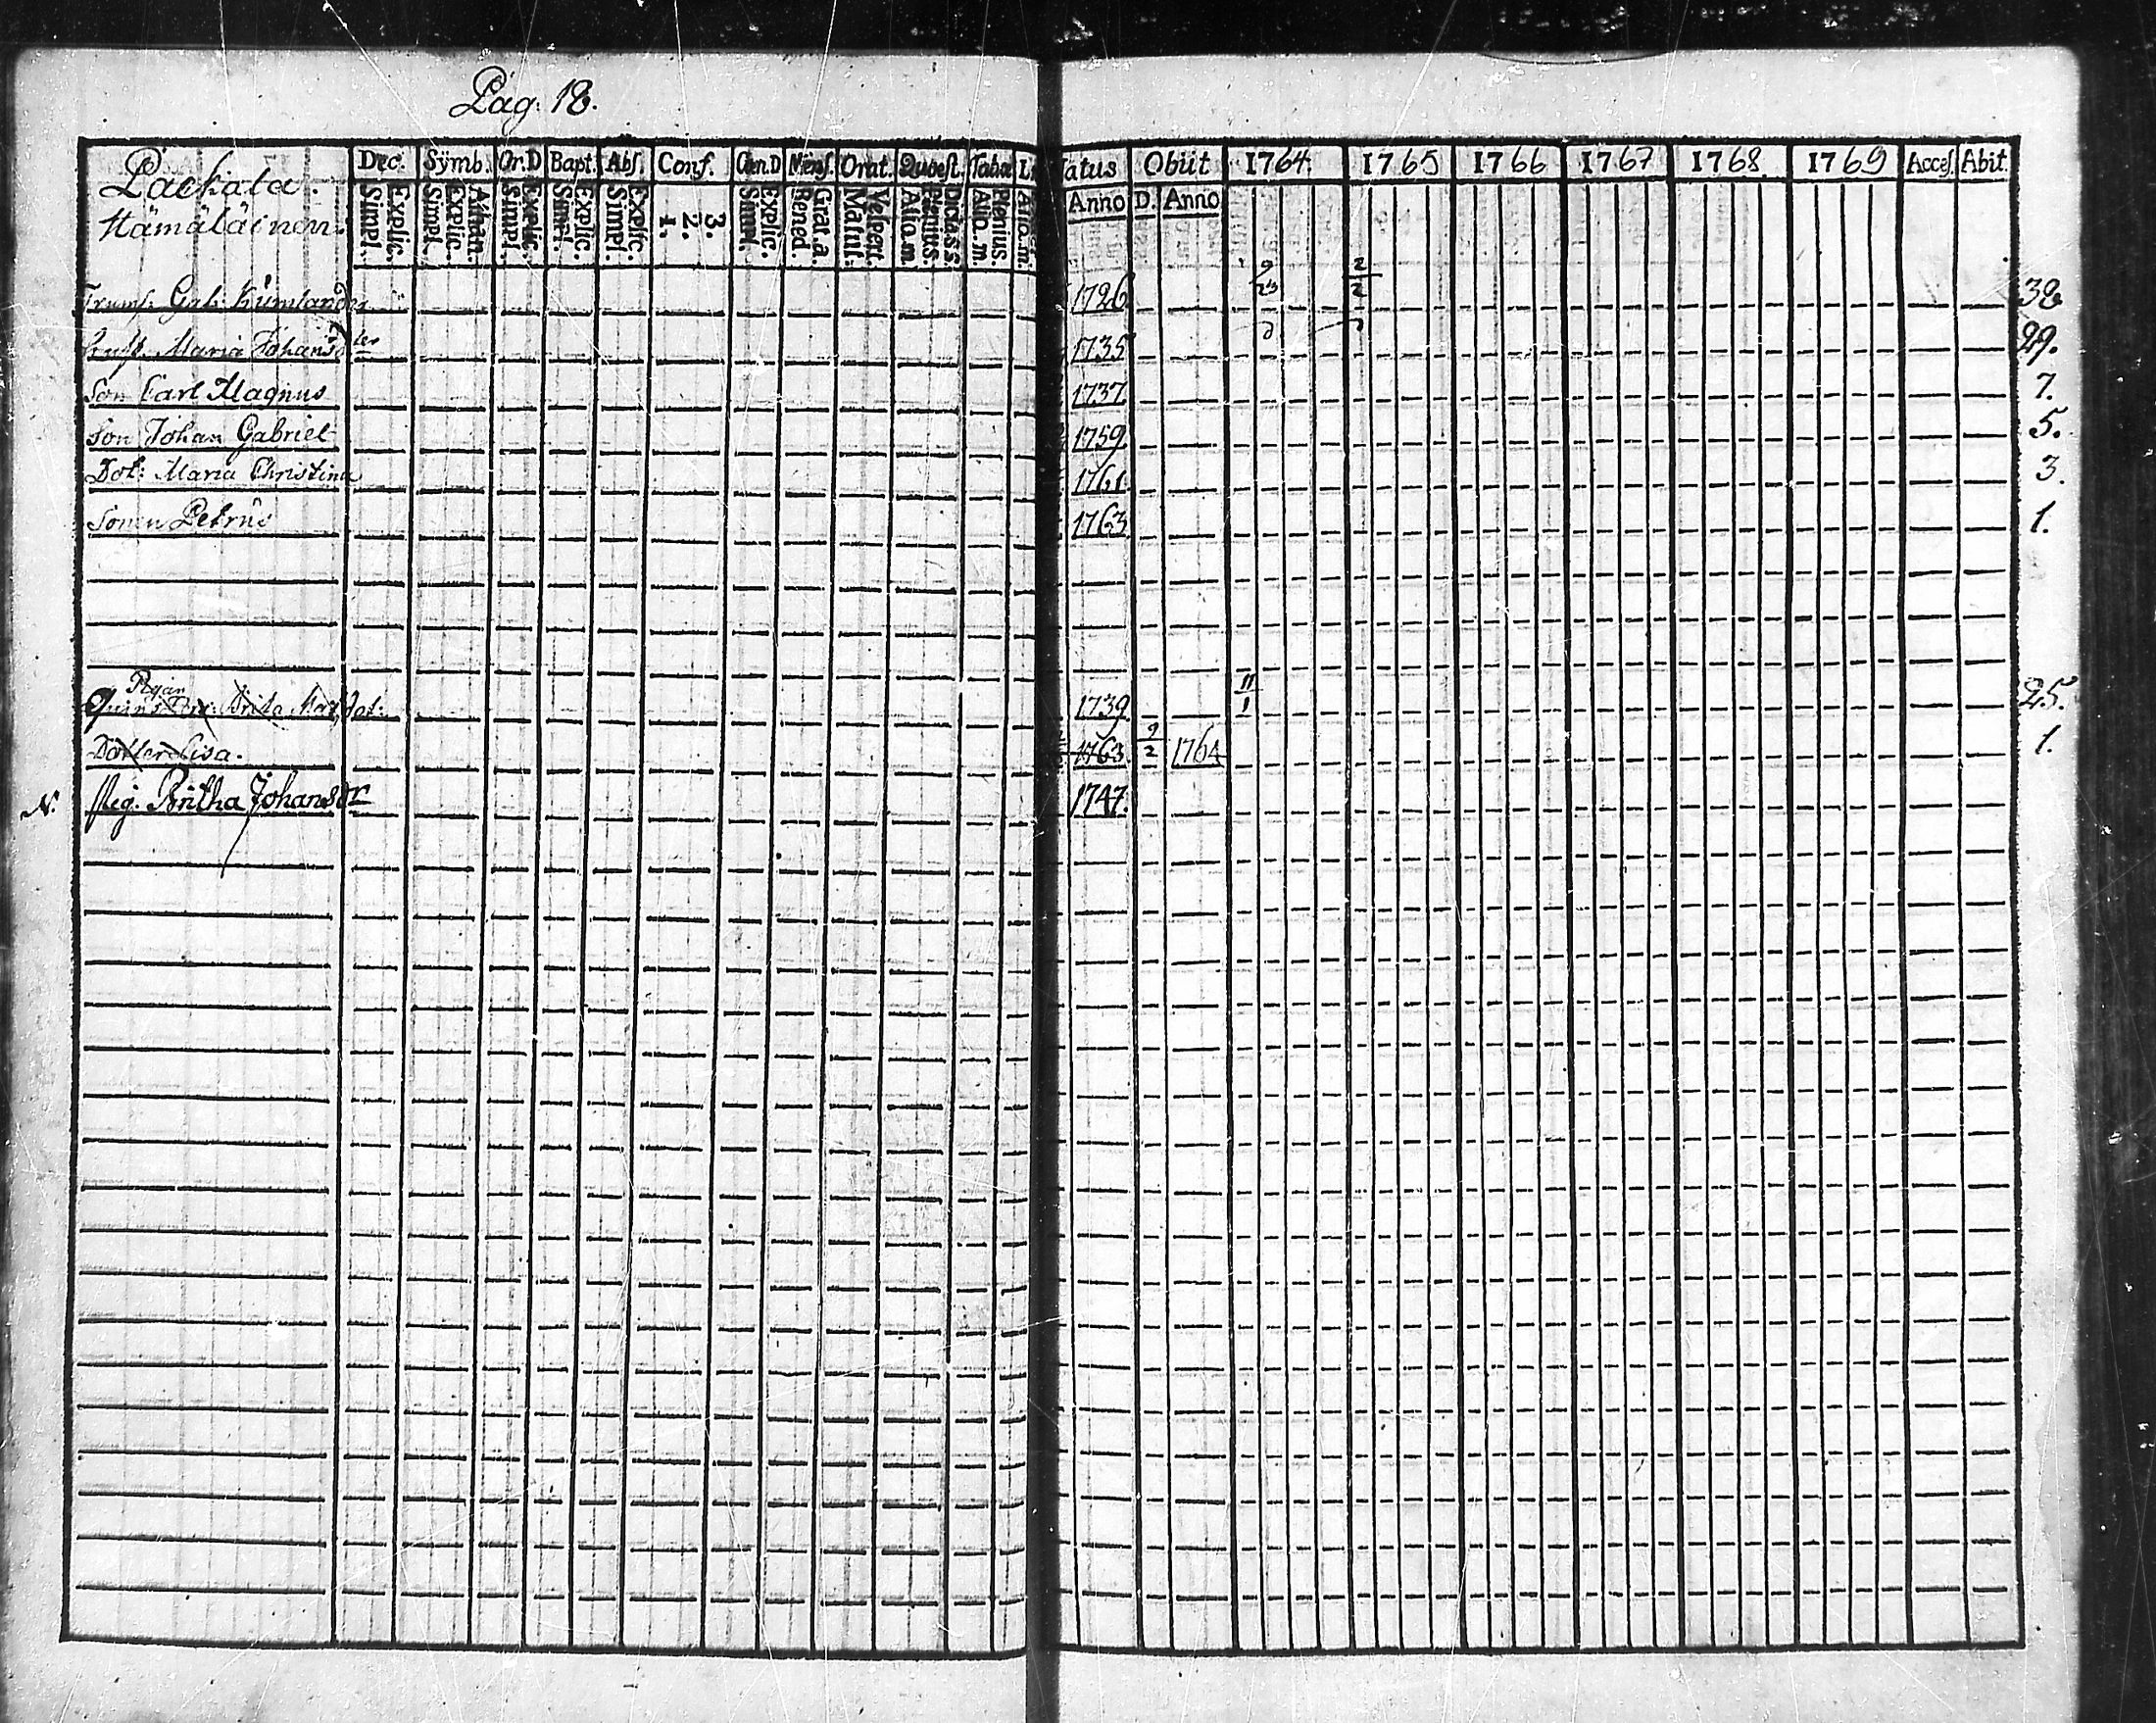 Pag: 18.
Dec. Sÿmb. Or.D Bapt. Abs. Conf. Cæn.D Mens. Orat. Quæst. Tabul L
Natus Obiit 1764. 1765 1766 1767 1768 1769 Acces. Abit.
Simpl. Explic. Simpl. Explic. Athan. Simpl. Explic. Simpl. Explic. Simpl. Explic. 1. 2. 3. Simpl. Explic. Bened. Grat.a. Matut. Vespert. Alio.m. Plenius. Alio.m. Plenius Alio.m.
Anno D. Anno
Lackala.
Hämäläinen.
Trumf. Gab. Kumlander 1726 9/23 2/2 38
Hust. Maria Johansdter 1735 29.
Son Carl Magnus 1737 7.
Son Johan Gabriel 1759 5.
Dot: Maria Christina 1761 3.
Sonen Petrus 1763 1.
Pigan
Brita Mat. dot: 1739 11/1 25.
Dotter Lisa. 1763 9/2 1764 1.
N. Pig. Britha Johansdr 1747.